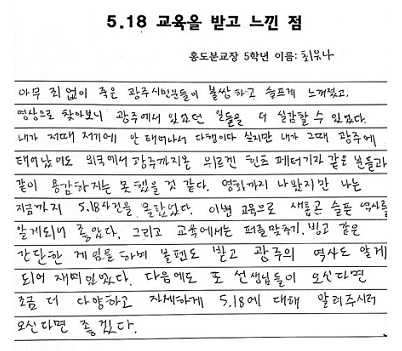 5.18 교육을 받고 느낀 점
홍도분교장 5학년 이름: 최유나
아무 죄없이 죽은 광주시민분들이 불쌍하고 슬프게 느껴졌고,
영상으로 찾아보니 광주에서 있었던 일들을 더 실감할 수 있었다.
내가 저때 저기에 안 태어나서 다행이다 싶지만 내가 그때 광주에
태어났어도 외국에서 광주까지온 위르겐 힌츠 페터기자같은 분들과
같이 용감하지는 못했을 것 같다. 영화까지 나왔지만 나는
지금까지 5.18사건을 몰랐었다. 이번 교육으로 새롭고 슬픈 역사를
알게되어 좋았다. 그리고 교육에서는 퍼즐맞추기, 빙고 같은
간단한 게임을 하며 볼펜도 받고 광주의 역사도 알게
되어 재미있었다. 다음에도 또 선생님들이 오신다면
조금 더 다양하고 자세하게 5.18에 대해 알려주시러
오신다면 좋겠다.